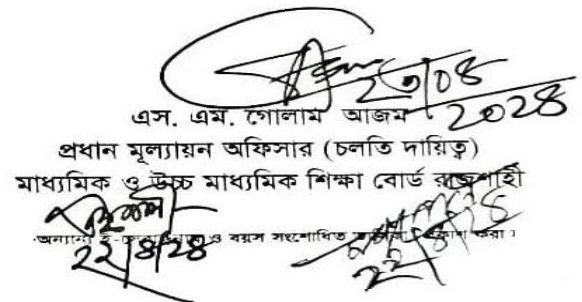 ২৩/০৪
২০২৪
এস. এম. গোলাম আজম
প্রধান মূল্যায়ন অফিসার (চলতি দায়িত্ব)
মাধ্যমিক ও উচ্চ মাধ্যমিক শিক্ষা বোর্ড রাজশাহী
ও বয়স সংশোধিত করা।
২২/৪/২৪
২২/৪/২৪